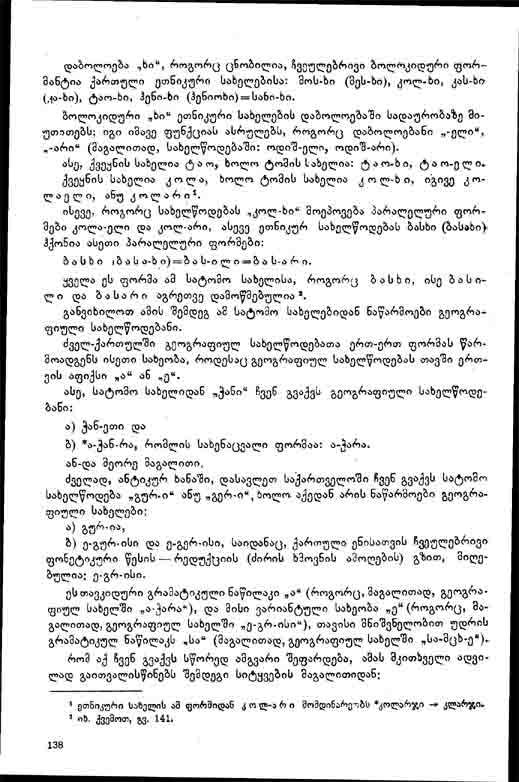 დაბოლოება „ხი“, როგორც ცნობილია, ჩვეულებრივი ბოლოკიდური ფორ-
მანტია ქართული ეთნიკური სახელებისა: მოს-ხი (მეს-ხი), კოლ-ხი, კას-ხი
ტაო-ხი, ჰენი-ხი (ჰენიოხი)=სანი-ხი.
ბოლოკიდური „ხი“ ეთნიკური სახელების დაბოლოებაში სადაურობაზე მი-
უთითებს; იგი იმავე ფუნქციას ასრულებს, როგორც დაბოლოებანი „-ელი“,
„-არი“ (მაგალითად, სახელწოდებაში: ოდიშ-ელი, ოდიშ-არი).
ასე, ქვეყნის სახელია ტ ა ო, ხოლო ტომის სახელია: ტ ა ო-ხ ი, ტ ა ო-ე ლ ი.
ქვეყნის სახელია კ ო ლ ა, ხოლო ტომის სახელია კ ო ლ-ხ ი, იგივე კ ო-
ლ ა ე ლ ი, ანუ კ ო ლ ა რ ი¹.
ისევე, როგორც სახელწოდებას „კოლ-ხი“ მოეპოვება პარალელური ფორ-
მები კოლა-ელი და კოლ-არი, ასევე ეთნიკურ სახელწოდებას ბასხი (ბასახი)
ჰქონია ასეთი პარალელური ფორმები:
ბ ა ს ხ ი (ბ ა ს ა-ხ ი)=ბ ა ს-ი ლ ი=ბ ა ს-ა რ ი.
ყველა ეს ფორმა ამ სატომო სახელისა, როგორც ბ ა ს ხ ი, ისე ბ ა ს ი-
ლ ი და ბ ა ს ა რ ი აგრეთვე დამოწმებულია².
განვიხილოთ ამის შემდეგ ამ სატომო სახელებიდან ნაწარმოები გეოგრა-
ფიული სახელწოდებანი.
ძველ-ქართულში გეოგრაფიულ სახელწოდებათა ერთ-ერთ ფორმას წარ-
მოადგენს ისეთი სახეობა, როდესაც გეოგრაფიულ სახელწოდებას თავში ერთ-
ვის აფიქსი „ა“ ან „ე“.
ასე, სატომო სახელიდან „ჭანი“ ჩვენ გვაქვს გეოგრაფიული სახელწოდე-
ბანი:
ა) ჭან-ეთი და
ბ) *ა-ჭან-რა, რომლის სახენაცვალი ფორმაა: ა-ჭარა.
ან-და მეორე მაგალითი.
ძველად, ანტიკურ ხანაში, დასავლეთ საქართველოში ჩვენ გვაქვს სატომო
სახელწოდება „გურ-ი“ ანუ „გერ-ი“, ხოლო აქედან არის ნაწარმოები გეოგრა-
ფიული სახელები:
ა) გურ-ია,
ბ) ე-გურ-ისი და ე-გერ-ისი, საიდანაც, ქართული ენისათვის ჩვეულებრივი
ფონეტიკური წესის — რედუქციის (ძირის ხმოვნის ამოღების) გზით, მიღე-
ბულია: ე-გრ-ისი.
ეს თავკიდური გრამატიკული ნაწილაკი „ა“ (როგორც, მაგალითად, გეოგრა-
ფიულ სახელში „ა-ჭარა“), და მისი ვარიანტული სახეობა „ე“ (როგორც, მა-
გალითად, გეოგრაფიულ სახელში „ე-გრ-ისი“), თავისი მნიშვნელობით უდრის
გრამატიკულ ნაწილაკს „სა“ (მაგალითად, გეოგრაფიულ სახელში „სა-მცხ-ე“).
რომ აქ ჩვენ გვაქვს სწორედ ამგვარი შეფარდება, ამას მკითხველი ადვი-
ლად გაითვალისწინებს შემდეგი სიტყვების მაგალითიდან:
¹ ეთნიკური სახელის ამ ფორმიდან კ ო ლ-ა რ ი მომდინარეობს *კოლარჯი → კლარჯი.
² იხ. ქვემოთ, გვ. 141.
138